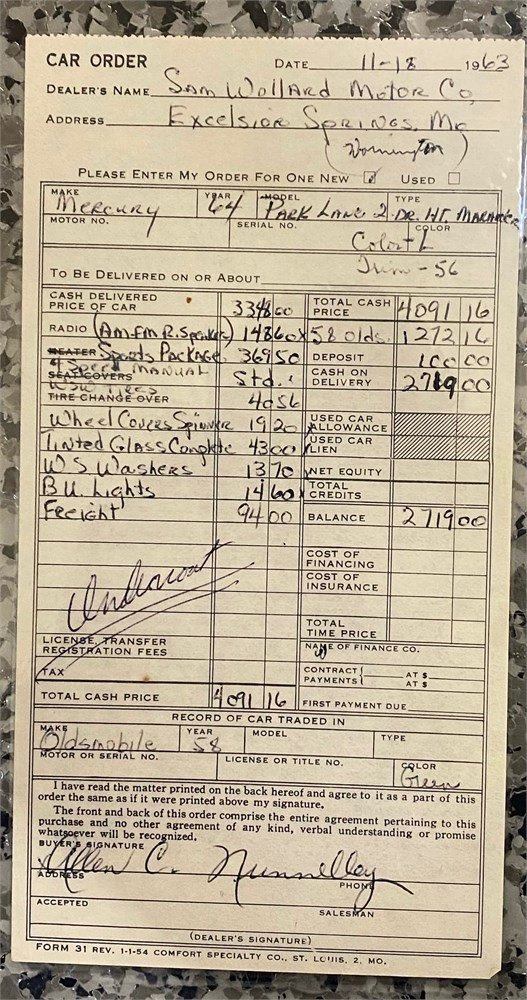 CAR ORDER
DATE 11-18 1963
DEALER'S NAME Sam Wollard Motor Co,
ADDRESS Excelsior Springs, Mo
(Wornington)
PLEASE ENTER MY ORDER FOR ONE NEW ☑ USED ☐
MAKE Mercury YEAR 64 MODEL Park Lane 2 TYPE DR. HT. Marauder
MOTOR NO. SERIAL NO. COLOR
Color L
Trim - 56
TO BE DELIVERED ON OR ABOUT
CASH DELIVERED PRICE OF CAR 3348 00 TOTAL CASH PRICE 4091 16
RADIO (Am.Fm R. Speaker) 148 60 X 58 olds. 1272 16
HEATER Sports Package 369 50 DEPOSIT 100 00
4 Speed Manual
SEAT COVERS Std. CASH ON DELIVERY 2719 00
WSW Tires
TIRE CHANGE OVER 40 56
Wheel Covers Spinner 19 20 USED CAR ALLOWANCE
Tinted Glass Complete 43 00 USED CAR LIEN
W S Washers 13 70 NET EQUITY
B.U. Lights 14 60 TOTAL CREDITS
Freight 94 00 BALANCE 2719 00
COST OF FINANCING
COST OF INSURANCE
Undercoat
TOTAL TIME PRICE
LICENSE, TRANSFER REGISTRATION FEES NAME OF FINANCE CO.
TAX CONTRACT PAYMENTS AT $
AT $
TOTAL CASH PRICE 4091 16 FIRST PAYMENT DUE
RECORD OF CAR TRADED IN
MAKE Oldsmobile YEAR 58 MODEL TYPE
MOTOR OR SERIAL NO. LICENSE OR TITLE NO. COLOR Green
I have read the matter printed on the back hereof and agree to it as a part of this
order the same as if it were printed above my signature.
The front and back of this order comprise the entire agreement pertaining to this
purchase and no other agreement of any kind, verbal understanding or promise
whatsoever will be recognized.
BUYER'S SIGNATURE Allen C. Nunnelley
ADDRESS PHONE
ACCEPTED
SALESMAN
(DEALER'S SIGNATURE)
FORM 31 REV. 1-1-54 COMFORT SPECIALTY CO., ST. LOUIS, 2, MO.